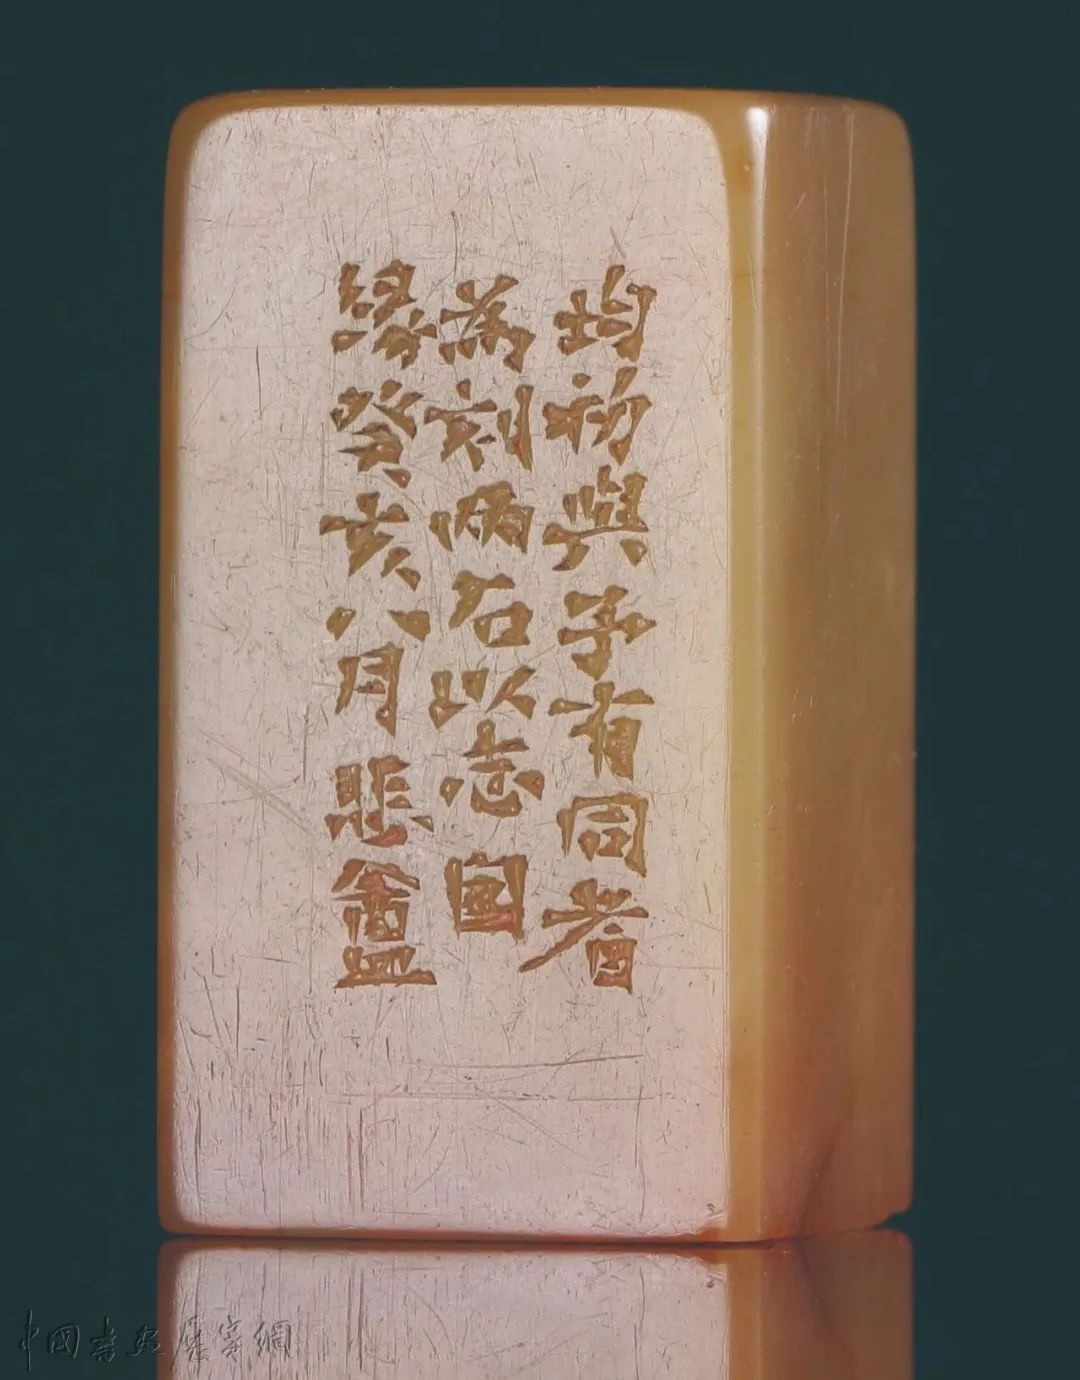 均初與予有同耆
為刻兩石以志因
緣癸亥八月悲盦
中国書画展賽網